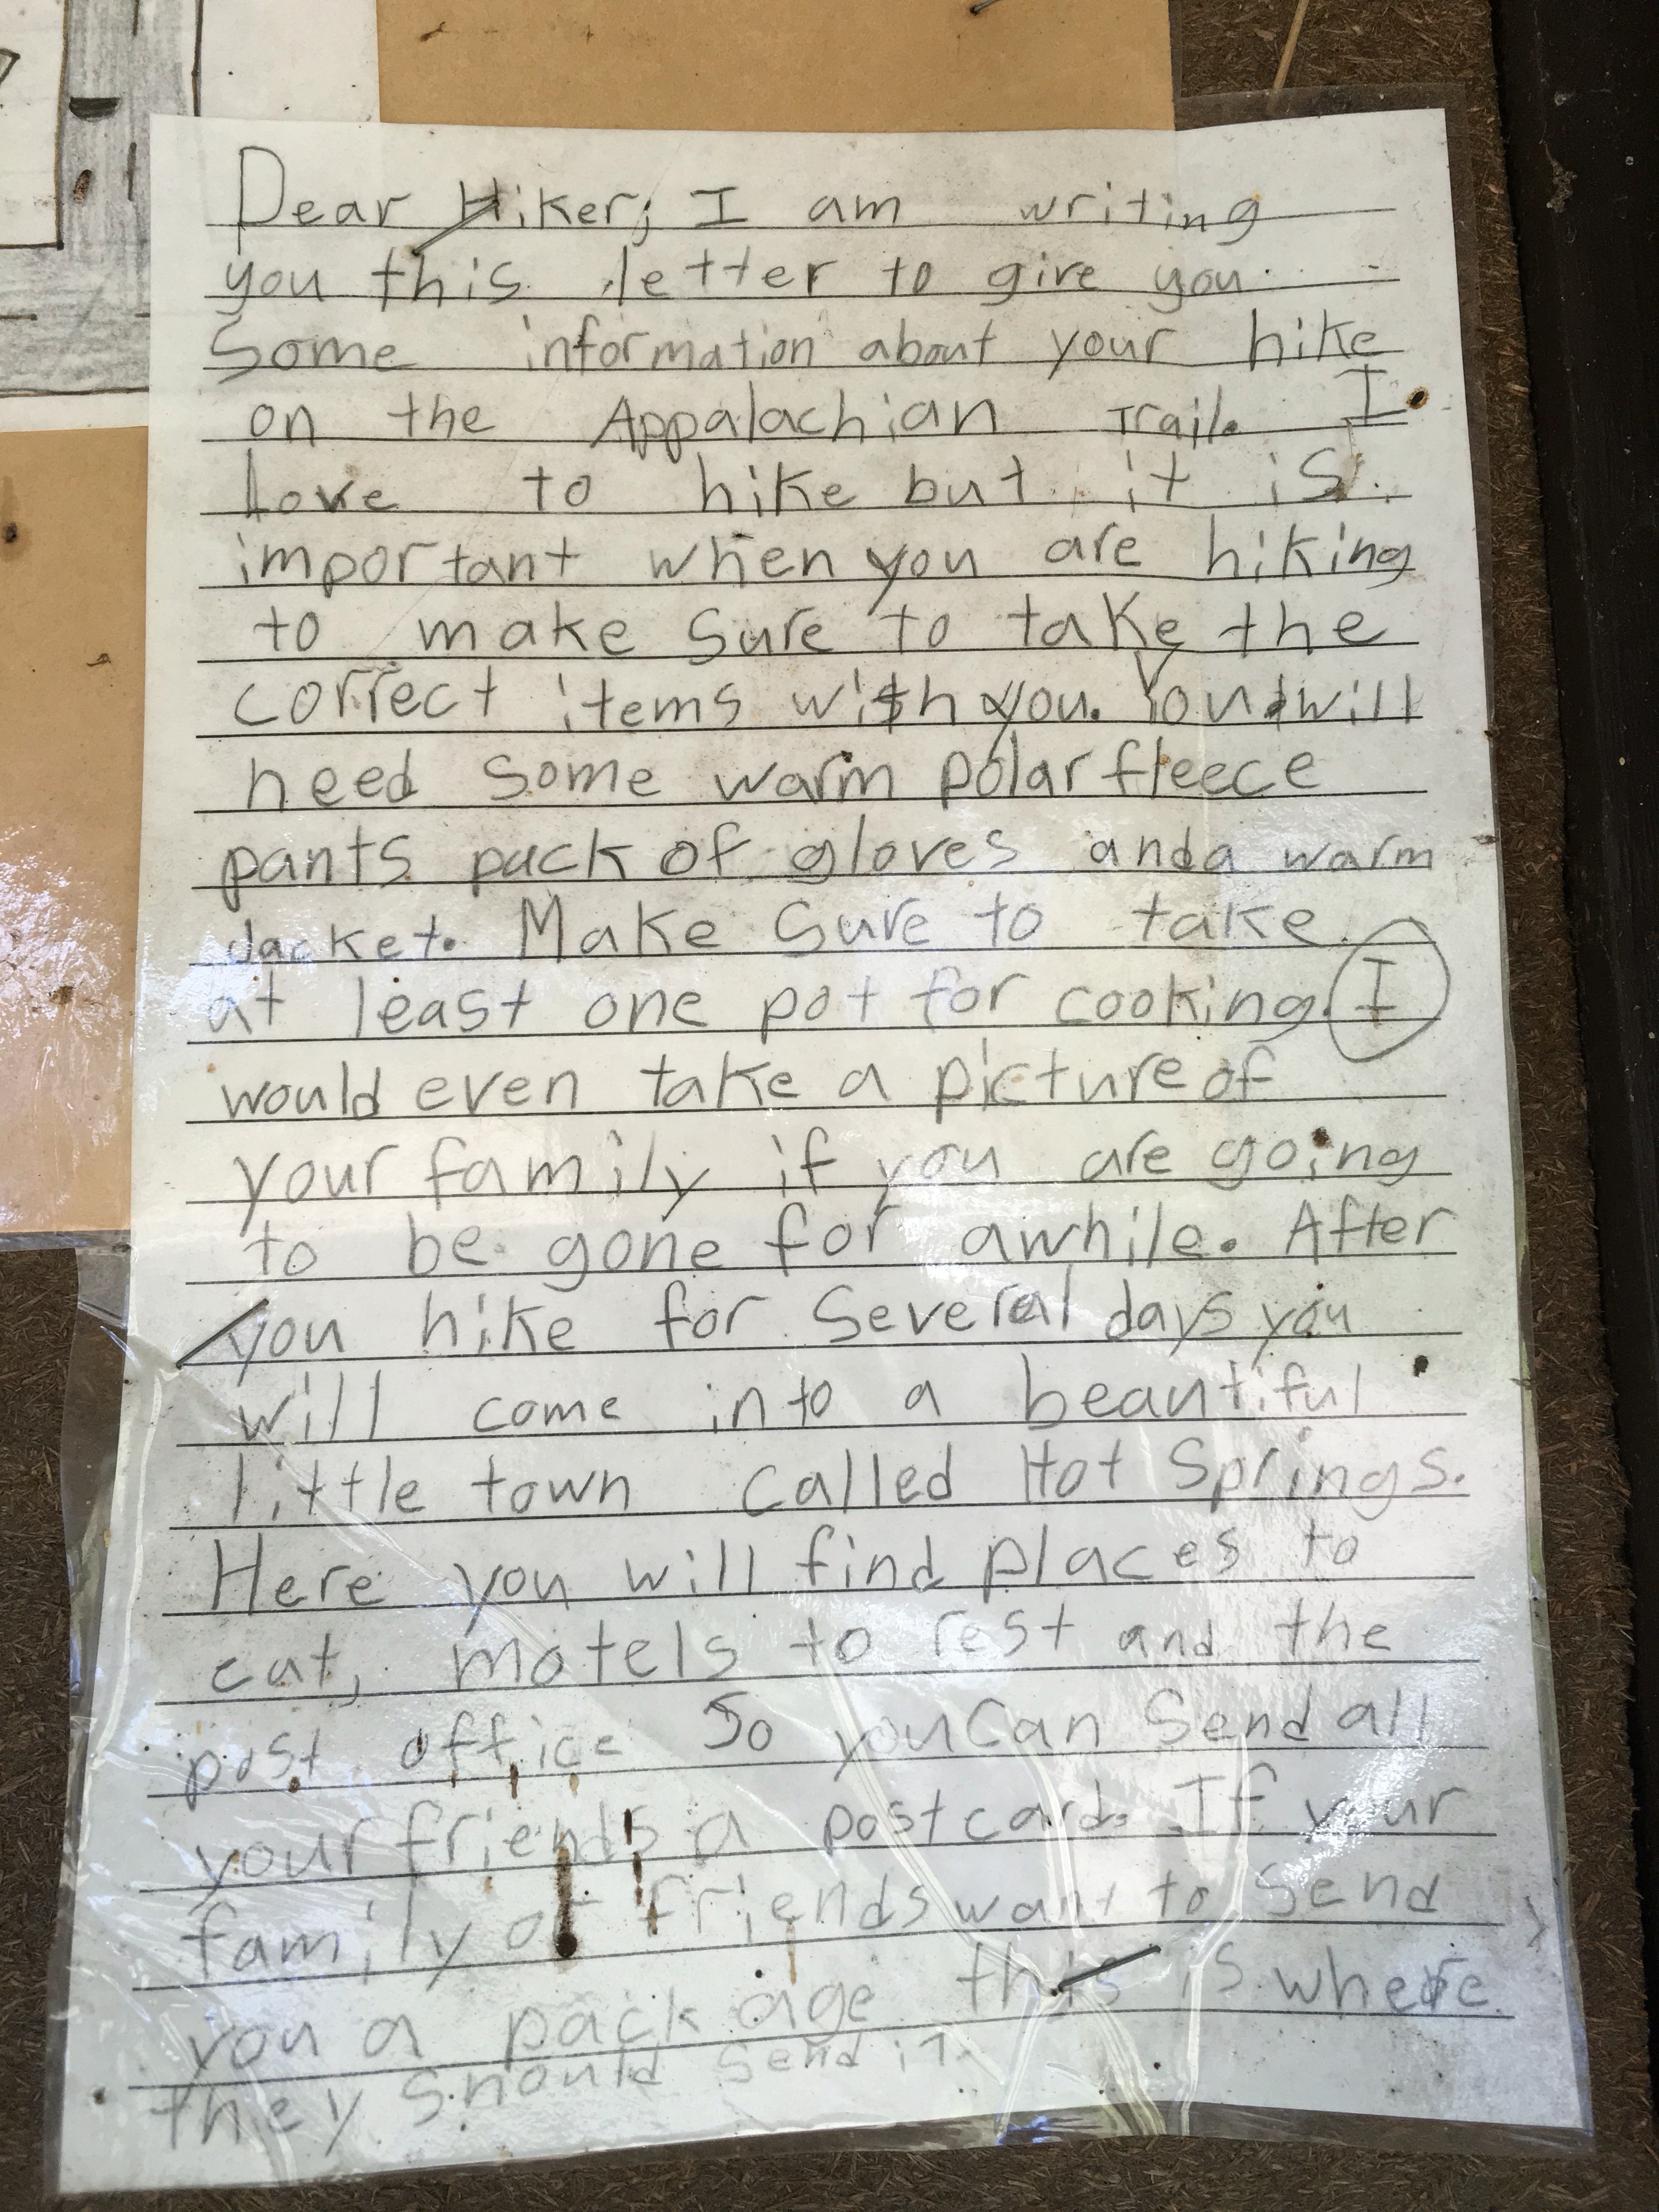 Dear Hiker, I am writing
you this letter to give you
Some information about your hike
on the Appalachian Trail. I
Love to hike but it is
important when you are hiking
to make sure to take the
correct items with you. You will
need some warm polar fleece
pants pack of gloves and a warm
Jacket. Make sure to take
at least one pot for cooking. I
would even take a picture of
your family if you are going
to be gone for awhile. After
you hike for several days you
will come into a beautiful
little town called Hot Springs.
Here you will find places to
eat, motels to rest and the
post office So you Can Send all
your friends a postcard. If your
family or friends want to Send
you a package this is where
they should send it.